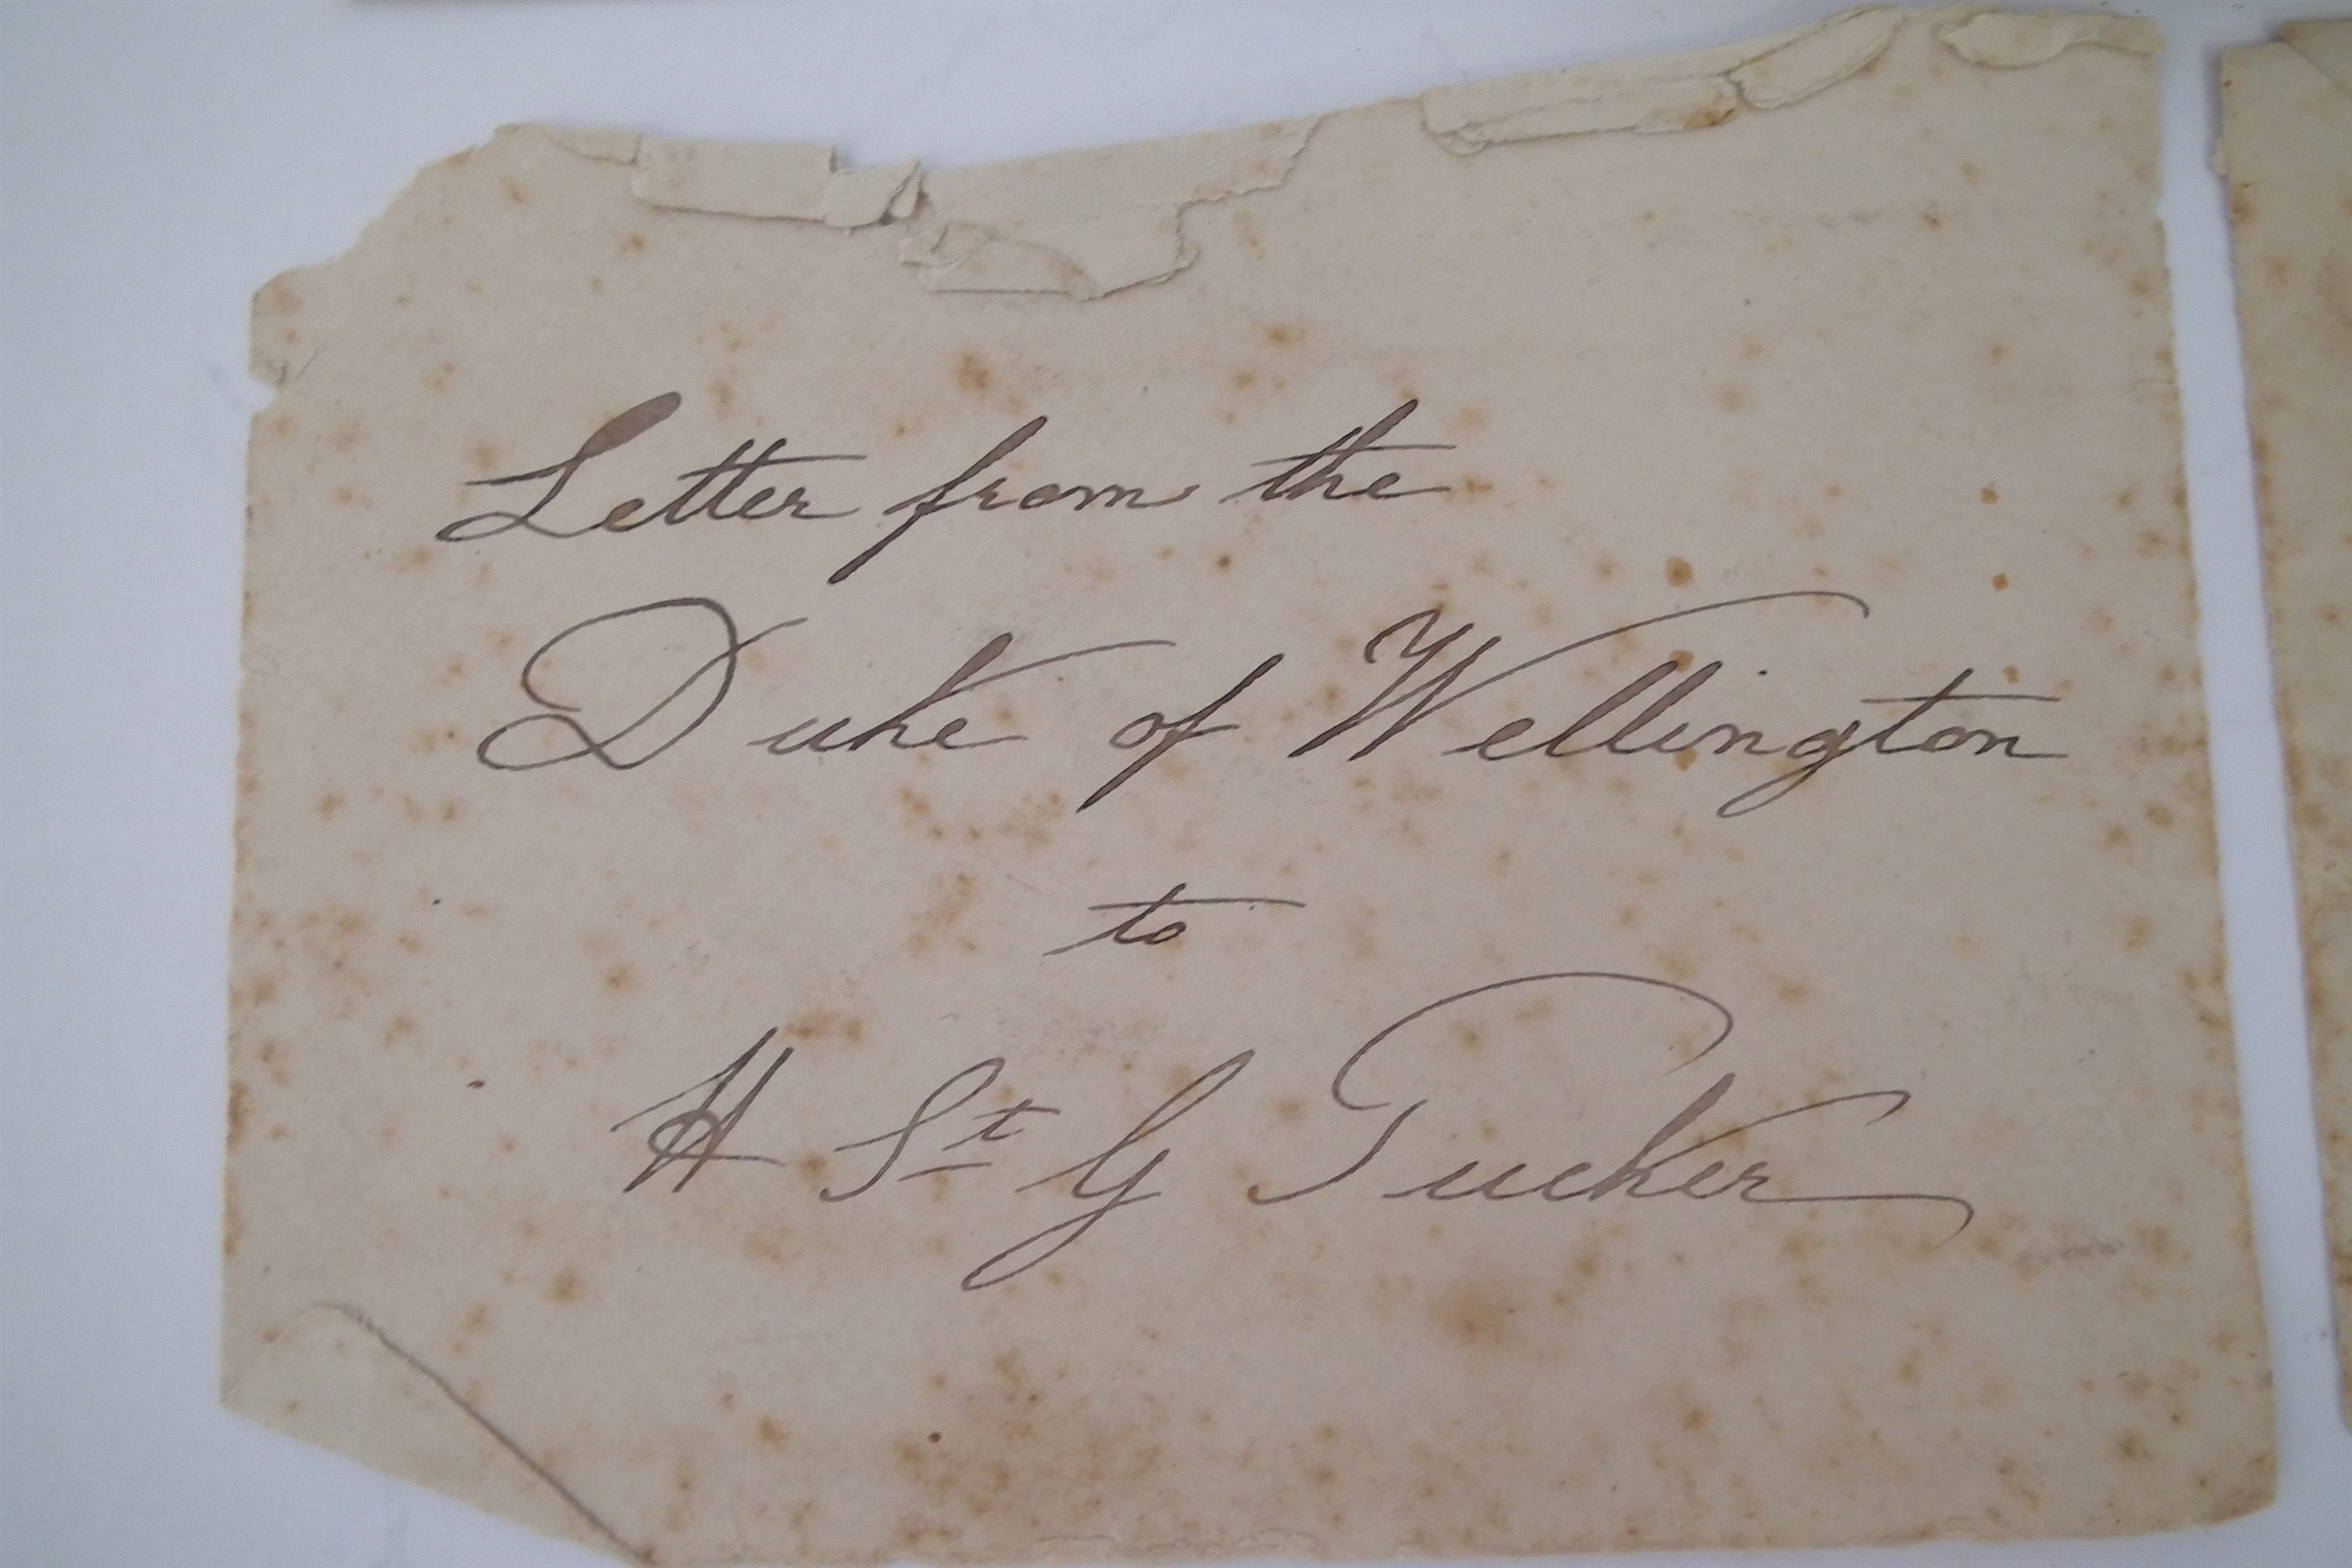 Letter from the
Duke of Wellington
to
H St G Tucker